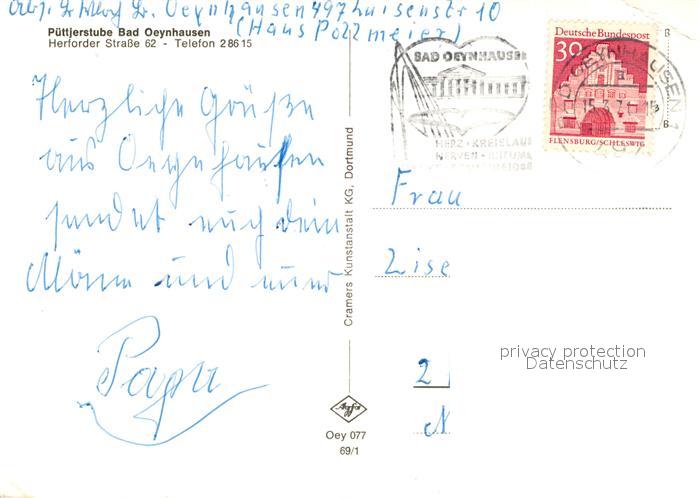 Oeynhausen 497 Luisenstr 10
(Haus Pollmeier)
Püttjerstube Bad Oeynhausen
Herforder Straße 62 - Telefon 2 86 15
Herzliche Grüße
aus Oeynhausen
sendet euch dein
Männe und euer
Papa
Cramers Kunstanstalt KG, Dortmund
Agfa
Oey 077
69/1
BAD OEYNHAUSEN
HERZ · KREISLAUF
NERVEN · RHEUMA
Deutsche Bundespost
30
FLENSBURG/SCHLESWIG
BAD OEYNHAUSEN 1
Frau
Lise
2
N
privacy protection
Datenschutz